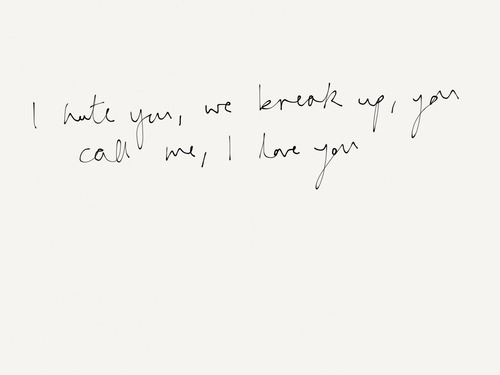 I hate you, we break up, you
call me, I love you